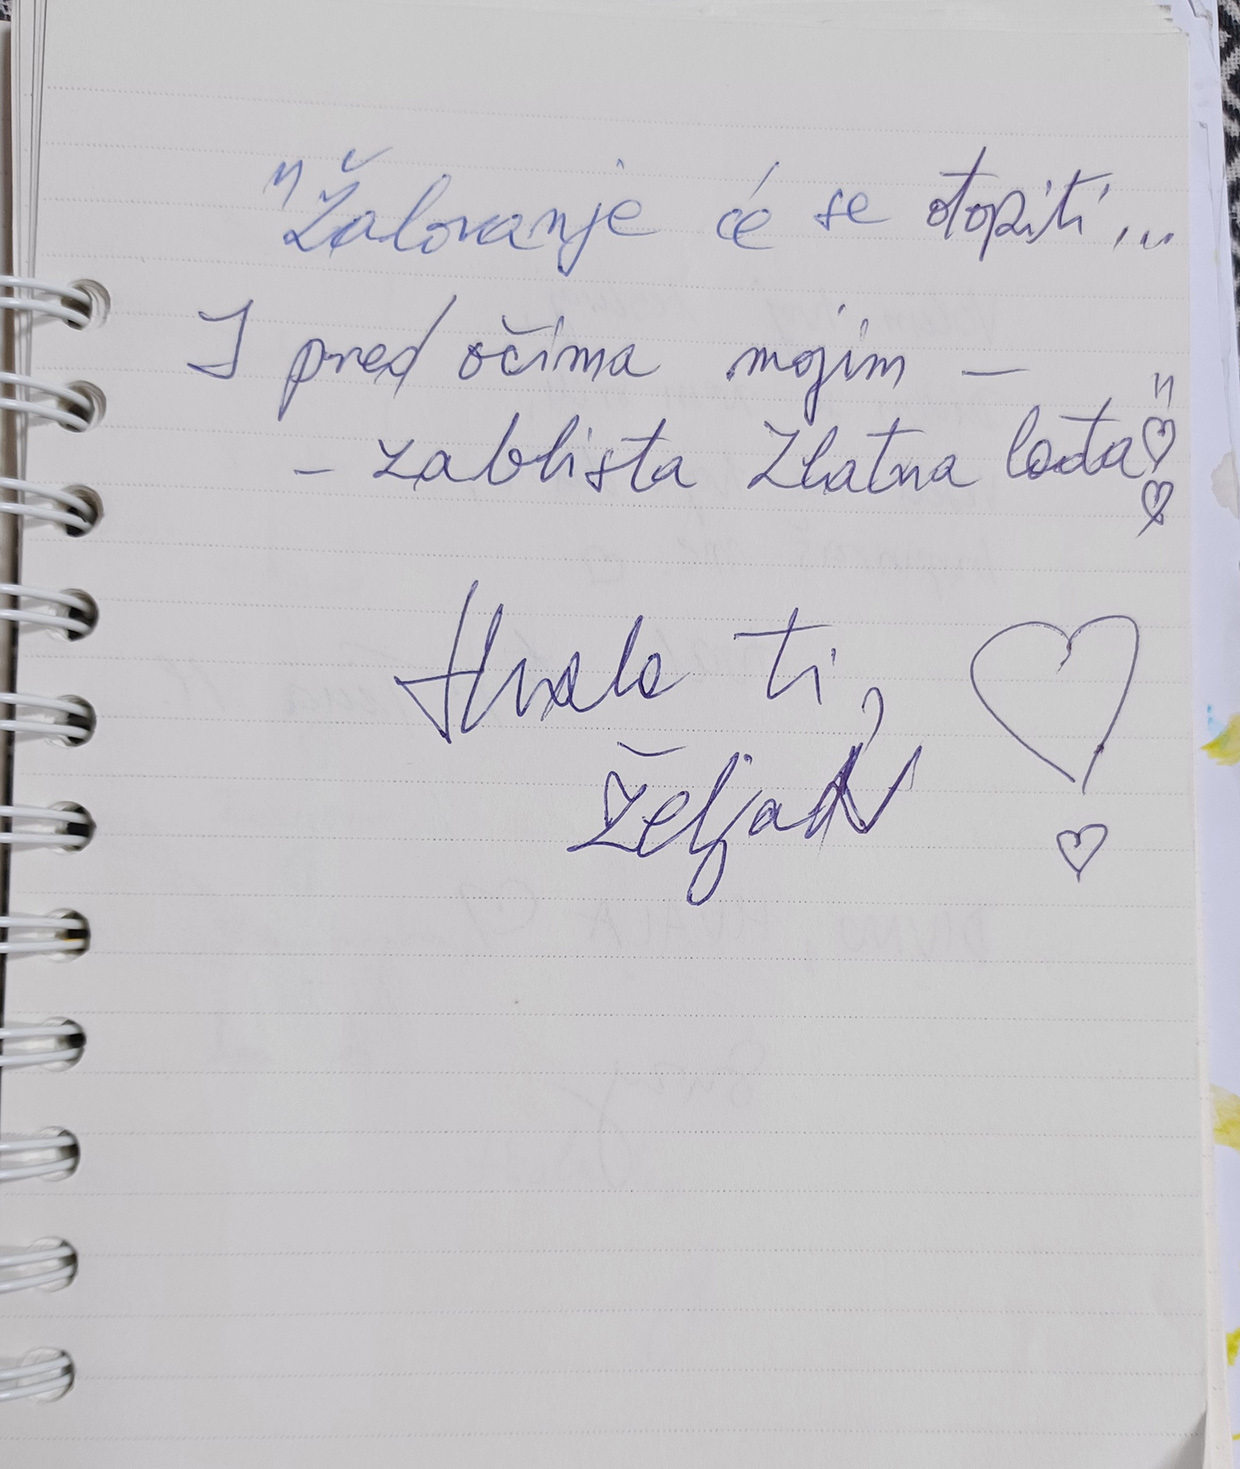 "Žalovanje će se otopiti...
I pred očima mojim –
– zablista Zlatna lađa"
Hvala ti,
DIVNO, HVALA